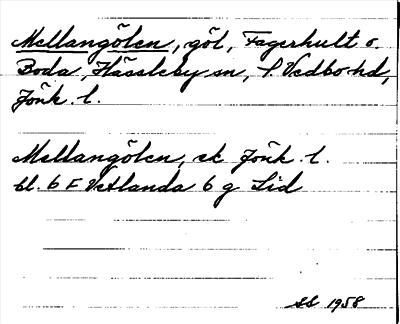 Mellangölen, göl, Fagerhult o.
Boda, Hässleby sn, S. Vedbo hd,
Jönk. l.
Mellangölen, ek Jönk. l.
bl. 6 F Vetlanda 6 g Lid
1958